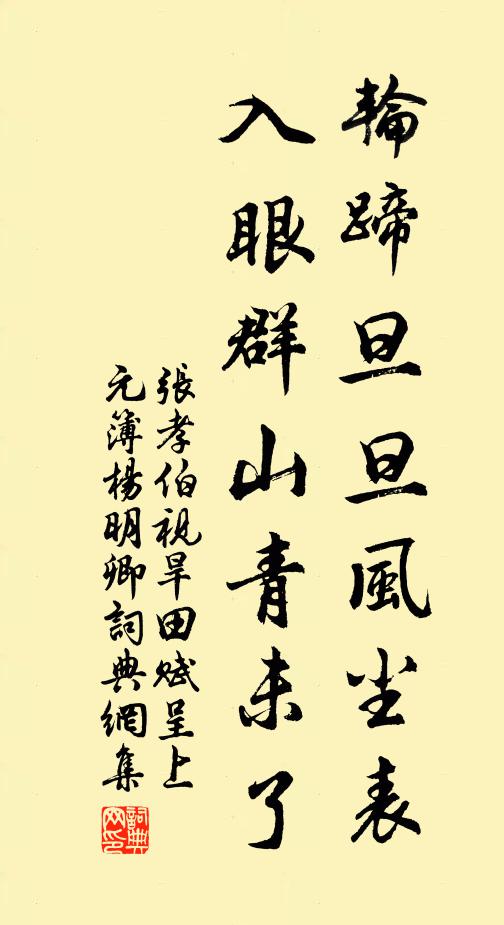 輪蹄旦旦風尘表
入眼群山青未了
張孝伯視旱田赋呈上
元簿楊明卿詞典網集
詞典
网印